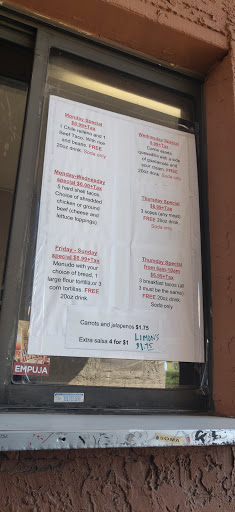 Monday Special
1 Chile relleno and 1
Beef Taco. With rice
and beans. FREE
20oz drink. Soda only
Monday-Wednesday
special $6.00+Tax
5 hard shell tacos.
Choice of shredded
chicken or ground
beef (cheese and
lettuce toppings)
Friday - Sunday
special $8.99+Tax
Menudo with your
choice of bread, 1
large flour tortilla,or 3
corn tortillas. FREE
20oz drink.
Wednesday Special
Carne asada
quesadilla with a side of
guacamole and
your cream. FREE
20oz drink. Soda only
Thursday Special
3 sopes (any meat)
FREE 20oz drink.
Soda only
Thursday Special
from 6am-10am
$5.99+Tax
3 breakfast tacos (all
3 must be the same)
FREE 20oz drink.
Soda only
Carrots and jalapenos $1.75
Extra salsa 4 for $1
LIMONS
$1.75
EMPUJA
SOMA